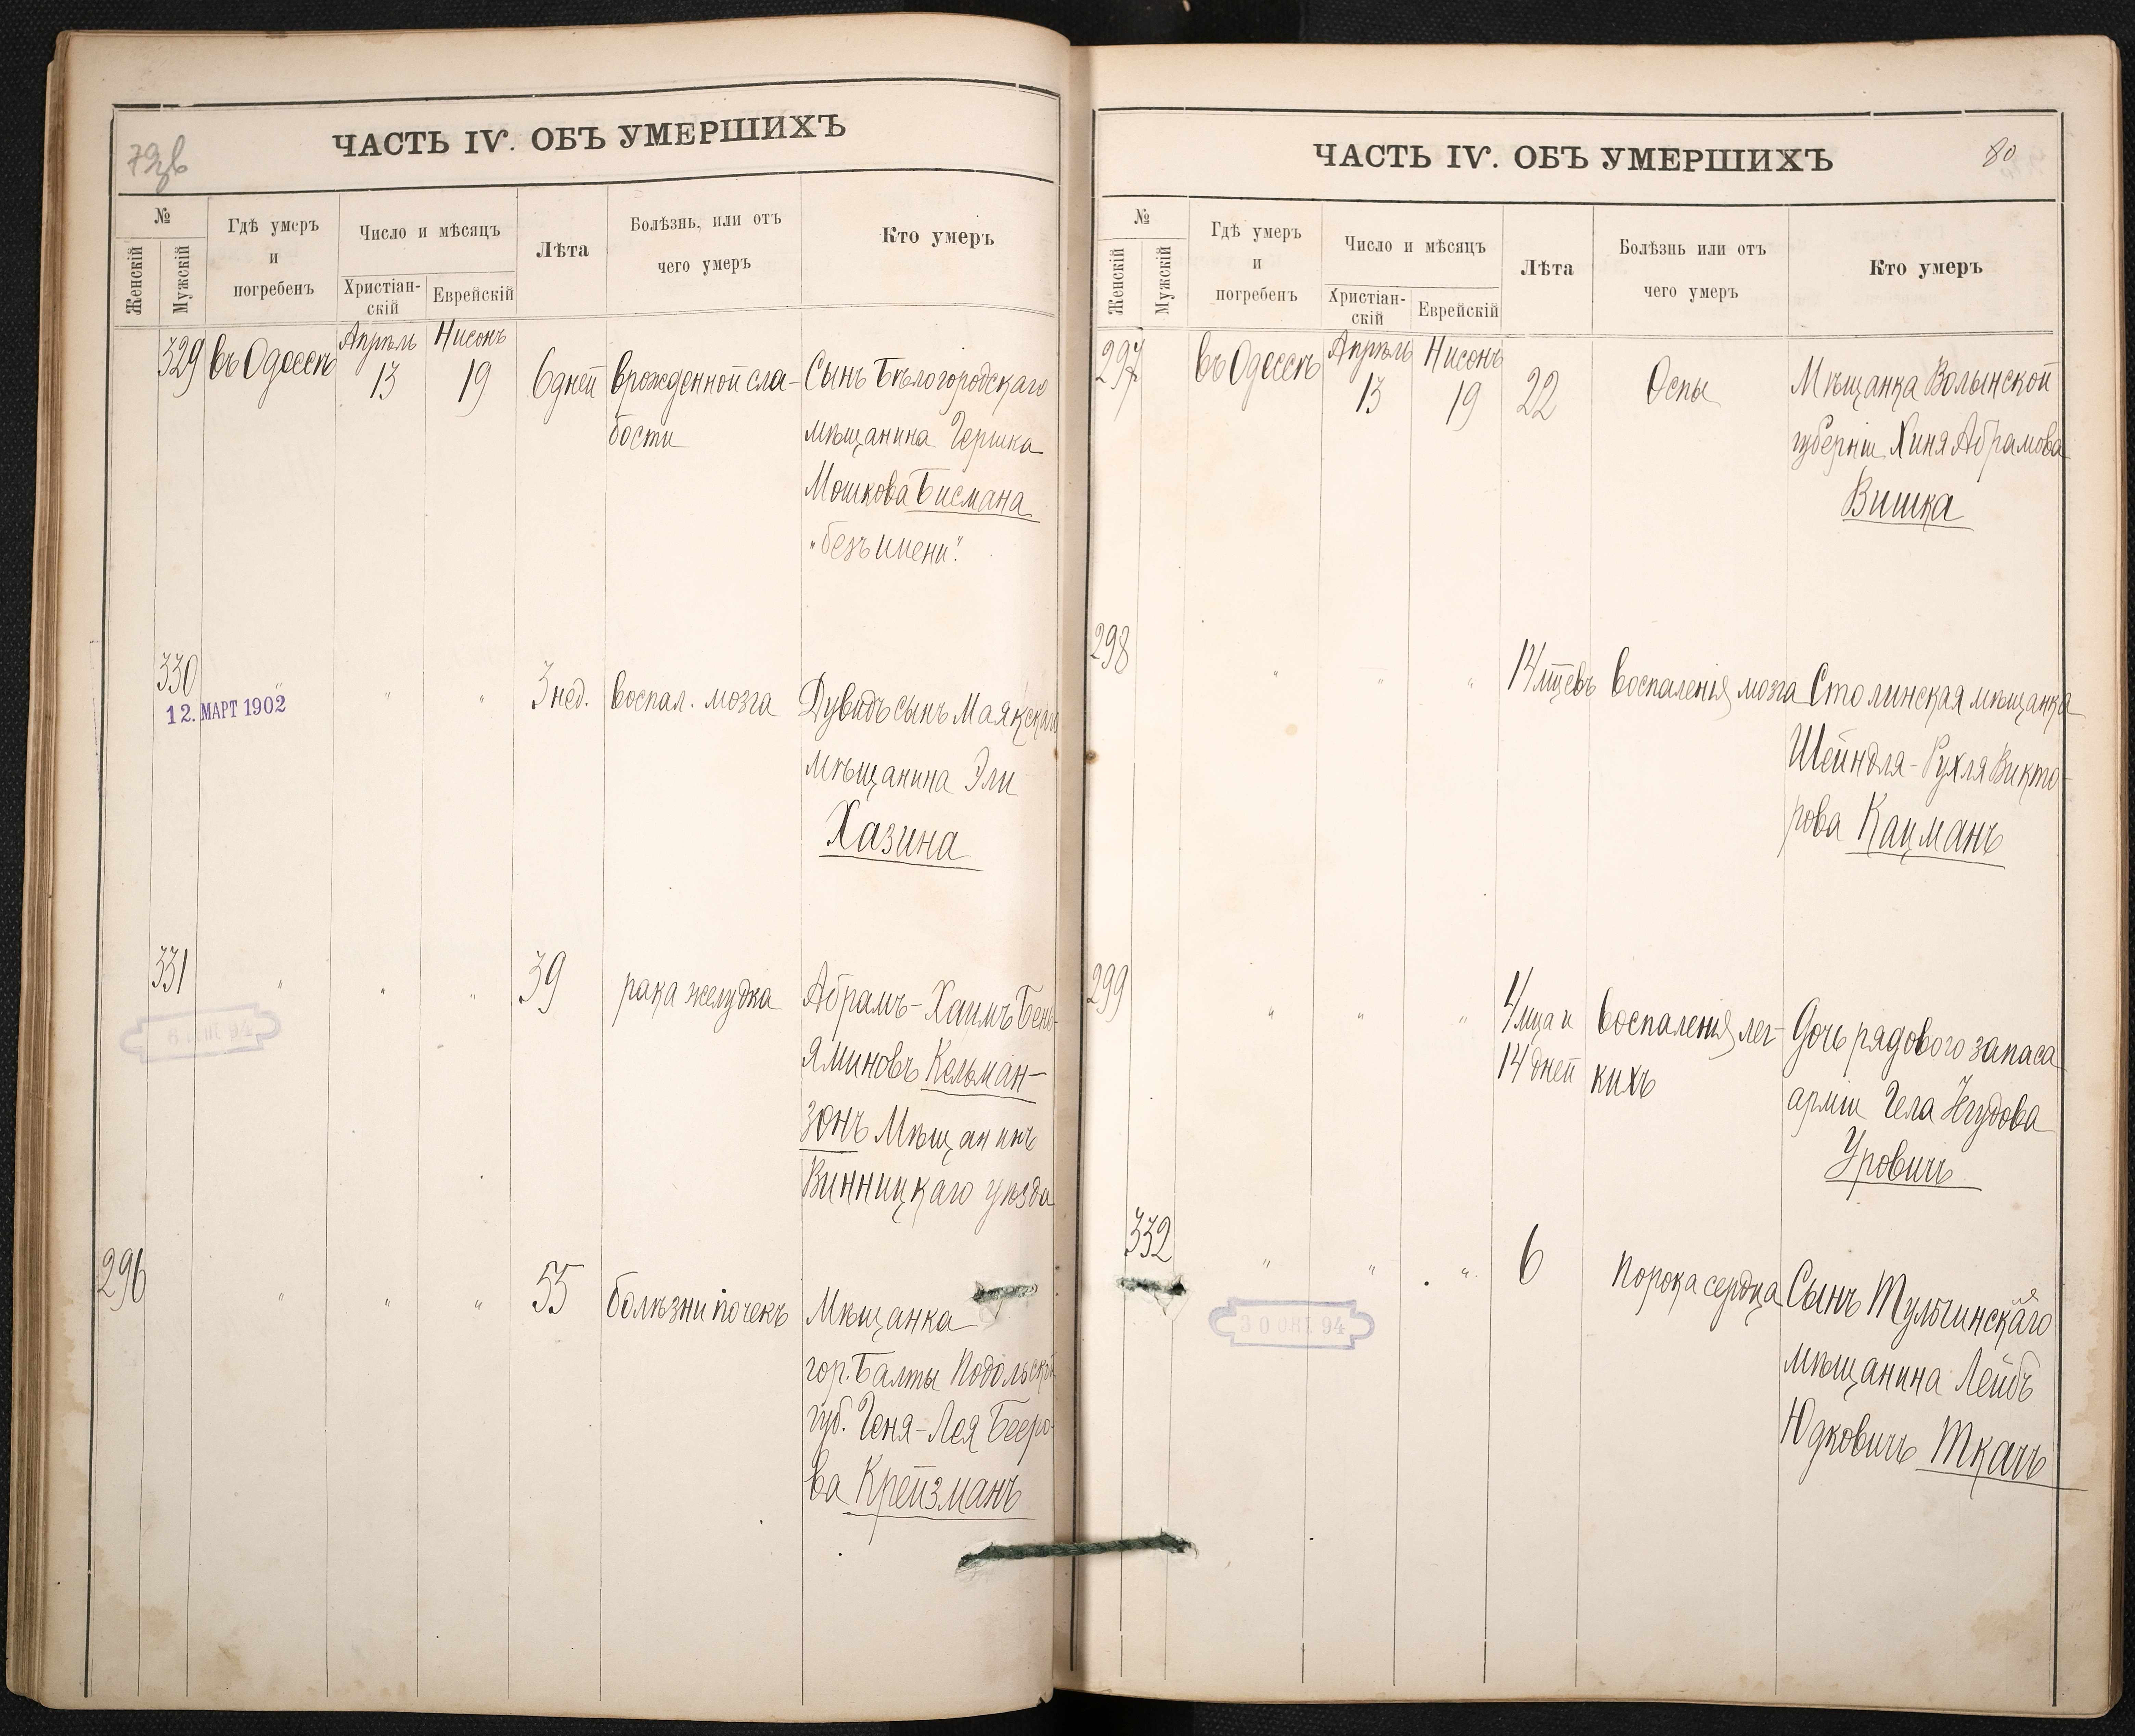 ЧАСТЬ IV. ОБЪ УМЕРШИХЪ
№
Женскій
Мужскій
Гдѣ умеръ
и
погребенъ
Число и мѣсяцъ
Христіан-
скій
Еврейскій
Лѣта
Болѣзнь, или отъ
чего умеръ
Кто умеръ
329 въ Одессѣ Апрѣль 13 Нисонъ 19 6 дней врожденной сла- Сынъ Бѣлогородскаго
бости мѣщанина Гершка
Мошкова Бисмана
"безъ имени".
330 " " " 3 нед. воспал. мозга Дувидъ сынъ Маякскаго
12. МАРТ 1902
мѣщанина Эли
Хазина
331 " " " 39 рака желудка Абрамъ-Хаимъ Бень-
яминовъ Кельман-
зонъ Мѣщанинъ
Винницкаго уѣзда
296 " " " 55 болѣзни почекъ Мѣщанка
гор. Балты Подольской
губ. Геня-Лея Бееро-
ва Крейзманъ
ЧАСТЬ IV. ОБЪ УМЕРШИХЪ
80
№
Женскій
Мужскій
Гдѣ умеръ
и
погребенъ
Число и мѣсяцъ
Христіан-
скій
Еврейскій
Лѣта
Болѣзнь или отъ
чего умеръ
Кто умеръ
297 въ Одессѣ Апрѣль 13 Нисонъ 19 22 Оспы Мѣщанка Волынской
губерніи Хиня Абрамова
Вишка
298 " " " 14 мцевъ воспаленія мозга Столинская мѣщанка
Шейндля-Рухля Викто-
рова Кацманъ
299 " " " 4 мца и воспаленія лег- Дочь рядового запаса
14 дней кихъ арміи Гела Іудова
Уровичъ
332 " " " 6 порока сердца Сынъ Тульчинскаго
30 ОКТ. 94
мѣщанина Лейбъ
Юдковичъ Ткачъ